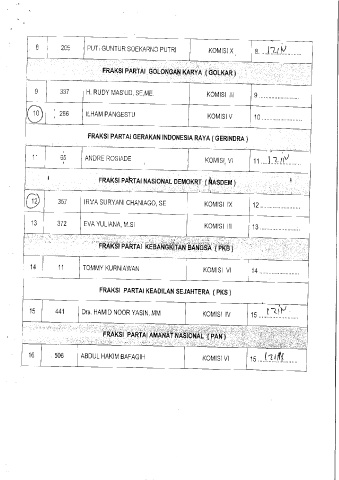 8 205 PUTI GUNTUR SOEKARNO PUTRI KOMISI X 8. IZIN
FRAKSI PARTAI GOLONGAN KARYA ( GOLKAR )
9 337 H. RUDY MAS'UD, SE,ME. KOMISI III 9 ..............
10 286 ILHAM PANGESTU KOMISI V 10 ..............
FRAKSI PARTAI GERAKAN INDONESIA RAYA ( GERINDRA )
11 65 ANDRE ROSIADE KOMISI VI 11 IZIN
FRAKSI PARTAI NASIONAL DEMOKRT ( NASDEM )
12 357 IRMA SURYANI CHANIAGO, SE KOMISI IX 12 ..............
13 372 EVA YULIANA, M.Si KOMISI III 13 ..............
FRAKSI PARTAI KEBANGKITAN BANGSA ( PKB )
14 11 TOMMY KURNIAWAN KOMISI VI 14 ..............
FRAKSI PARTAI KEADILAN SEJAHTERA ( PKS )
15 441 Drs. HAMID NOOR YASIN, MM KOMISI IV 15 IZIN
FRAKSI PARTAI AMANAT NASIONAL ( PAN )
16 506 ABDUL HAKIM BAFAGIH KOMISI VI 16 IZIN